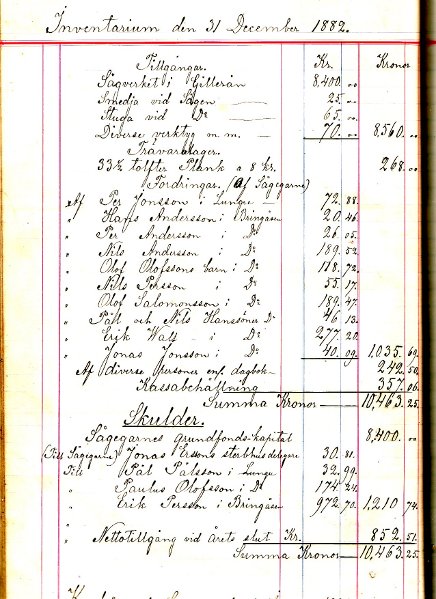 Inventarium den 31 December 1882.
Tillgångar. Kr. Kronor
Sågverket i Gillerån 8,400. "
Smedja vid Sågen — 25. "
Stuga vid Do — 65. "
Diverse verktyg m. m. — 70. " 8,560. "
Trävarulager.
33½ tolfter Plank a 8 kr. 268. "
Fordringar. (Af Sågegarne)
Af Per Jonsson i Lunge — 72. 88.
" Hans Andersson i Bringåsen 20. 46.
" Per Andersson i Do 26. 05.
" Nils Andersson i Do 189. 52.
" Olof Olofssons barn i Do 118. 72.
" Nils Persson i Do 55. 17.
" Olof Salomonsson i Do 189. 47.
" Pål och Nils Hanssöner Do 46. 13.
" Erik Wall — i Do 277. 20.
" Jonas Jonsson i Do 40. 09. 1,035. 69.
Af diverse personer enl. dagbok — 242. 50.
Kassabehållning 357. 06.
Summa Kronor — 10,463. 25.
Skulder.
Sågegarnes grundfonds-kapital 8,400. "
(Till Sågegarne) Jonas Erssons sterbhusdelegare 30. 81.
Till Pål Pålsson i Lunge 32. 99.
" Paulus Olofsson i Do 174. 24.
" Erik Persson i Bringåsen 972. 70. 1,210. 74.
" Nettotillgång vid årets slut Kr. 852. 51.
Summa Kronor — 10,463. 25.